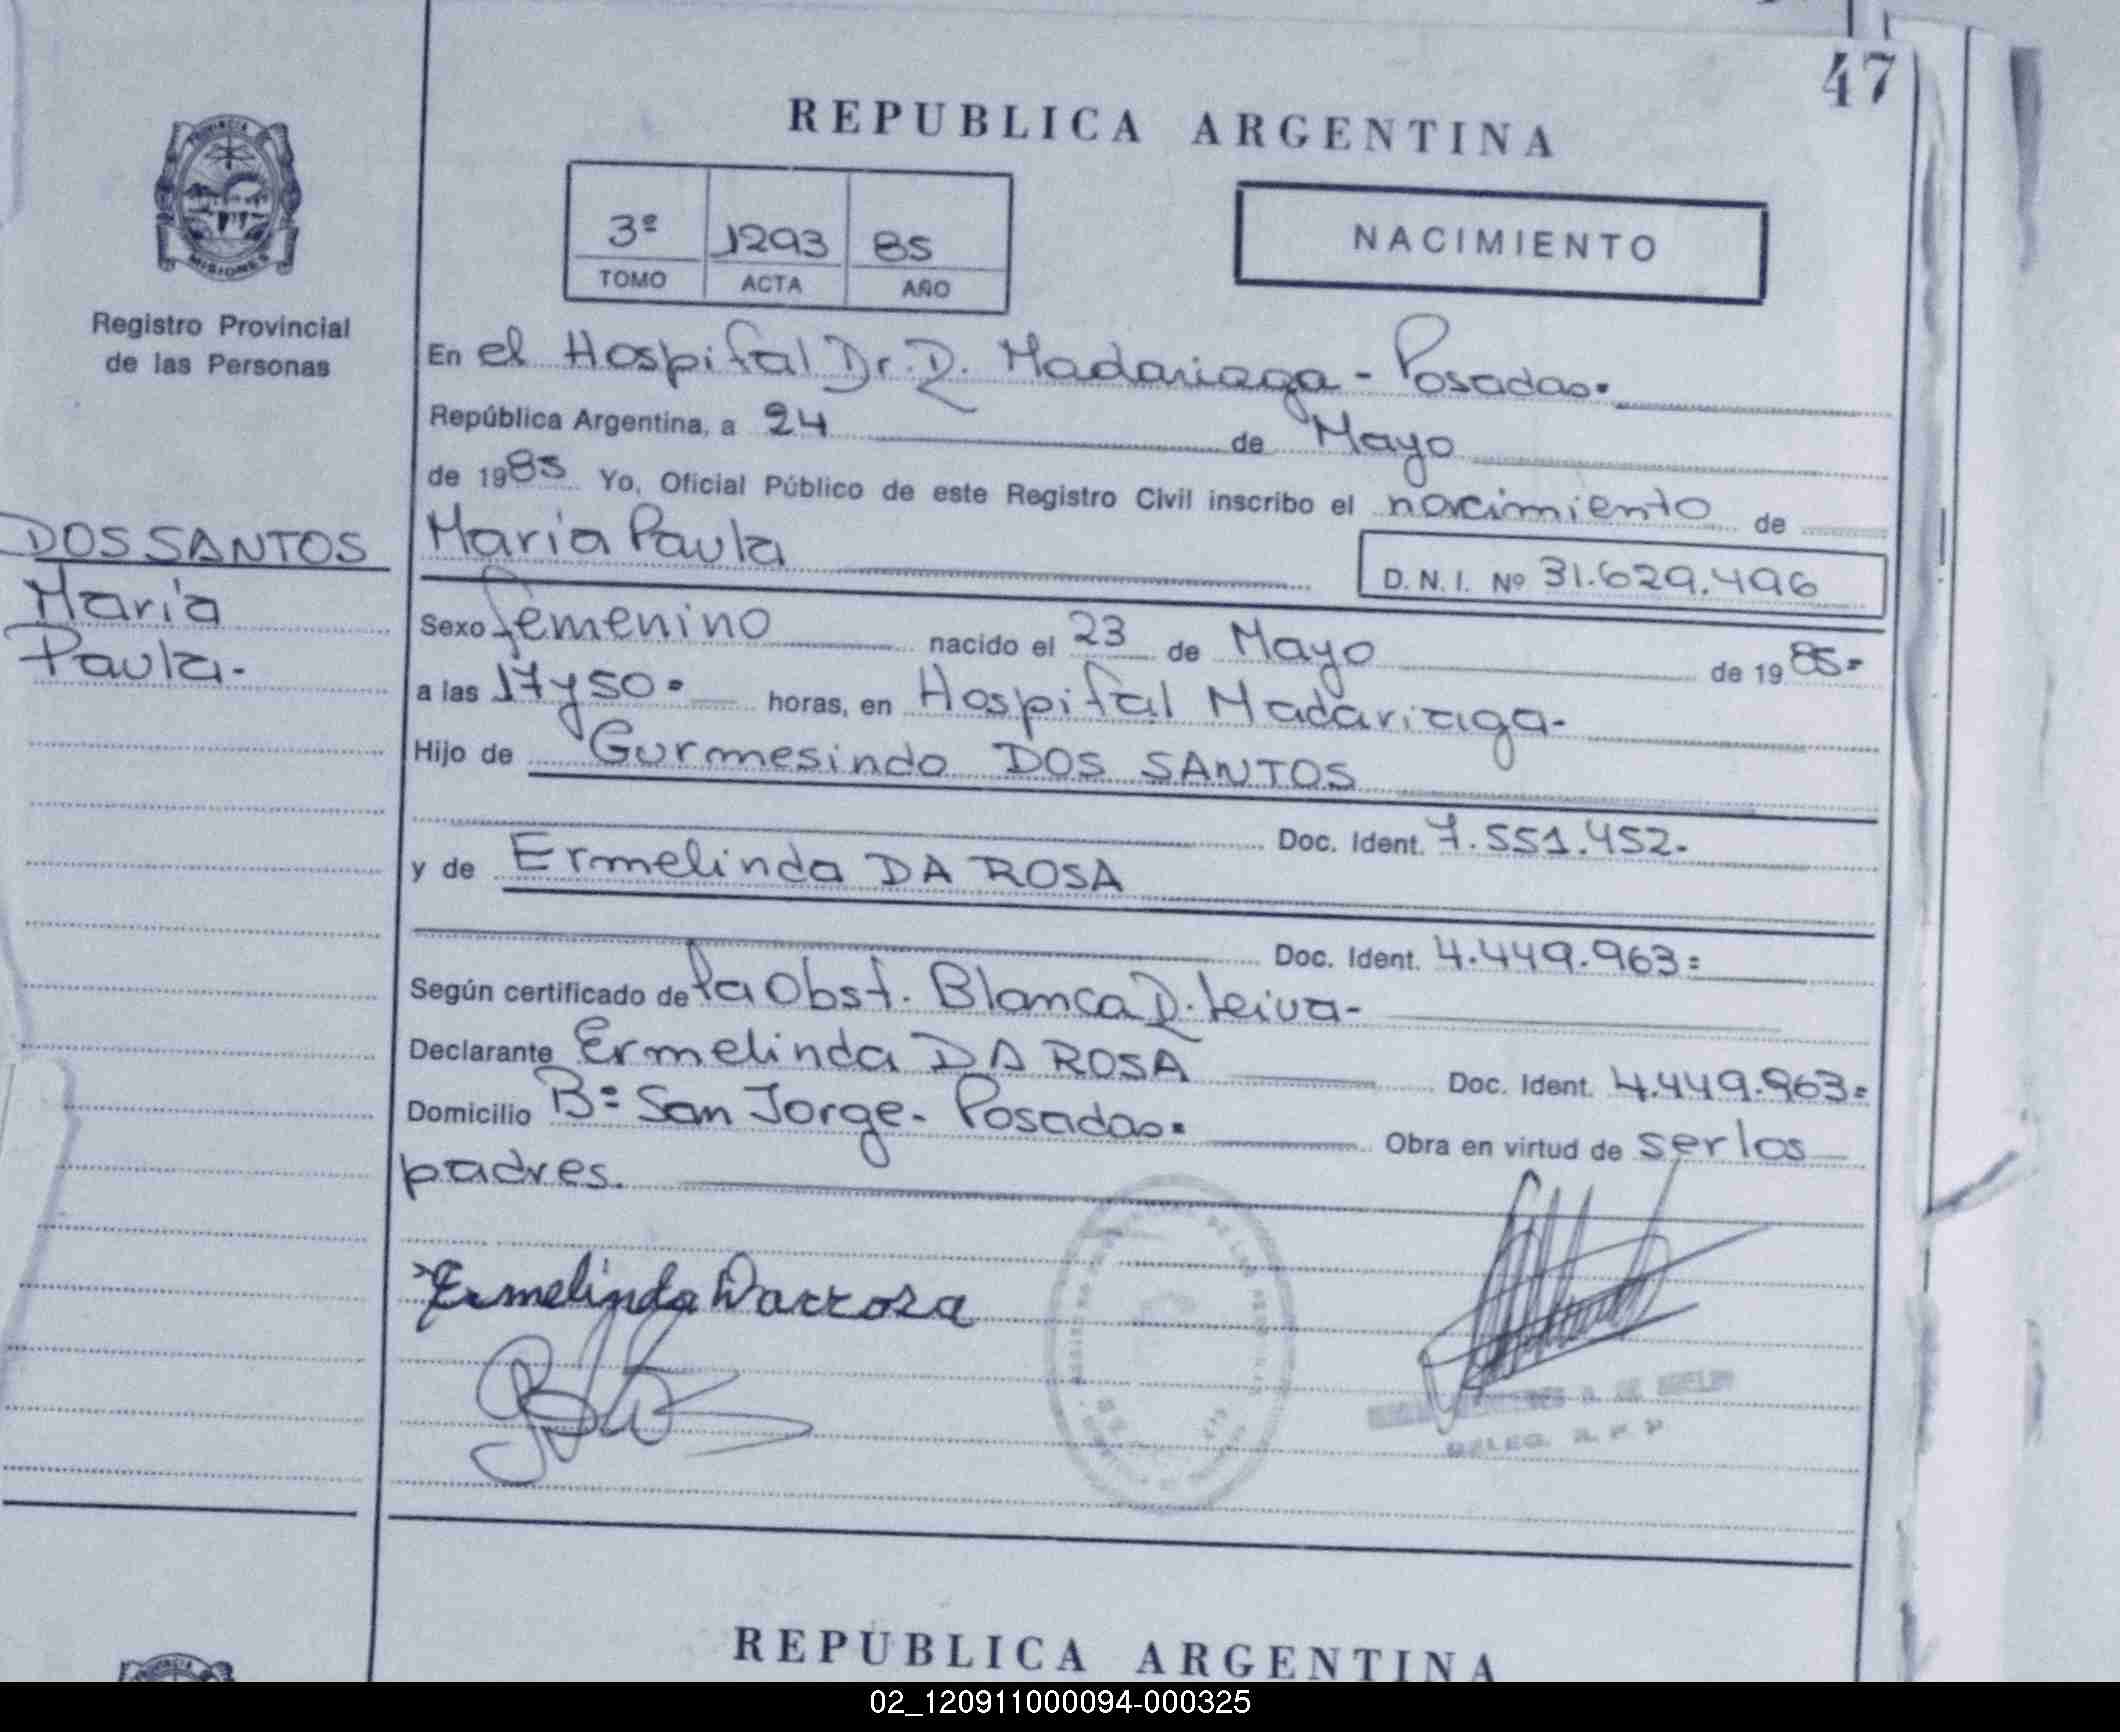 47
REPUBLICA ARGENTINA
PROVINCIA
MISIONES
Registro Provincial
de las Personas
3º 1293 85
TOMO ACTA AÑO
NACIMIENTO
En el Hospital Dr. R. Madariaga - Posadas.
República Argentina, a 24 de Mayo
de 1985 Yo, Oficial Público de este Registro Civil inscribo el nacimiento de
DOS SANTOS
María
Paula.-
María Paula
D. N. I. Nº 31.629.496
Sexo femenino nacido el 23 de Mayo de 1985=
a las 17 y 50. horas, en Hospital Madariaga-
Hijo de Gurmesindo DOS SANTOS
Doc. Ident. 7.551.452.
y de Ermelinda DA ROSA
Doc. Ident. 4.449.963=
Según certificado de la Obst. Blanca R. Leiva-
Declarante Ermelinda DA ROSA Doc. Ident. 4.449.963=
Domicilio Bº San Jorge- Posadas. Obra en virtud de ser los
padres.
Ermelinda Darrosa
DELEG. R. P. P
REPUBLICA ARGENTINA
PROVINCIA
02_120911000094-000325